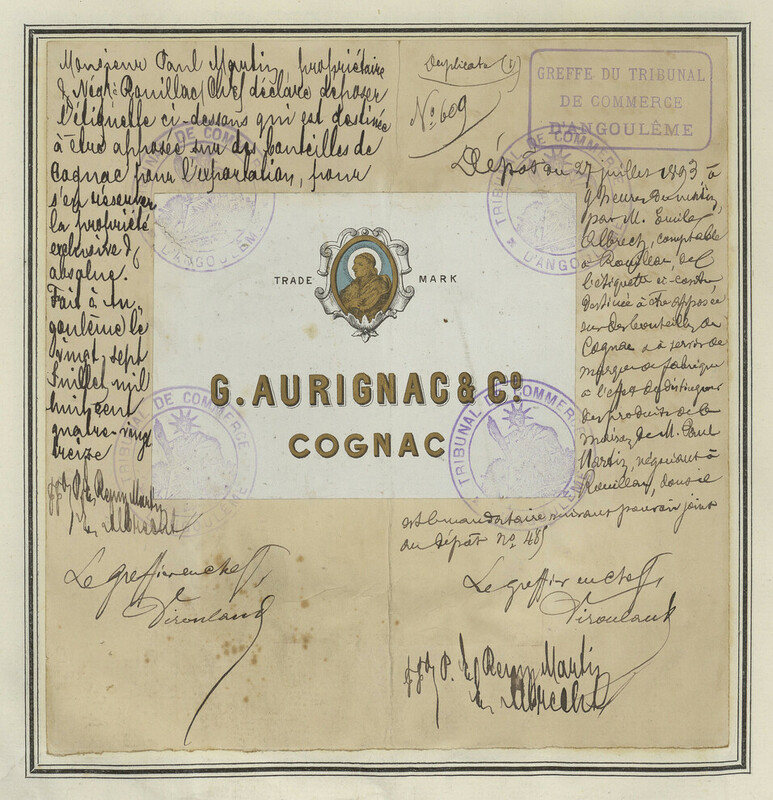 Monsieur Paul Martin, propriétaire
& Négt à Rouillac (Che) déclare déposer
l'étiquette ci-dessous qui est destinée
à être apposée sur des bouteilles de
Cognac pour l'exportation, pour
s'en réserver
la propriété
exclusive &
absolue.
Fait à An-
goulême le
vingt-sept
Juillet mil
huit cent
quatre-vingt
treize
P. E. Remy Martin
Albrecht
Le Greffier en chef,
Duplicata
No 609
GREFFE DU TRIBUNAL
DE COMMERCE
D'ANGOULÊME
Dépôt du 27 juillet 1893 à
9 heures du matin,
par M. Emile
Albrech, comptable
à Rouillac, de
l'étiquette ci-contre
destinée à être apposée
sur des bouteilles de
Cognac & à servir de
marque de fabrique
à l'effet de distinguer
des produits de la
maison de M. Paul
Martin, négociant à
Rouillac, dont il
est le mandataire suivant pouvoir joint
au dépôt no 48
Le greffier en chef,
P. E. Remy Martin
Albrecht
TRADE MARK
G. AURIGNAC & Co.
COGNAC
TRIBUNAL DE COMMERCE
D'ANGOULÊME
TRIBUNAL DE COMMERCE
D'ANGOULÊME
TRIBUNAL DE COMMERCE
D'ANGOULÊME
TRIBUNAL DE COMMERCE
D'ANGOULÊME